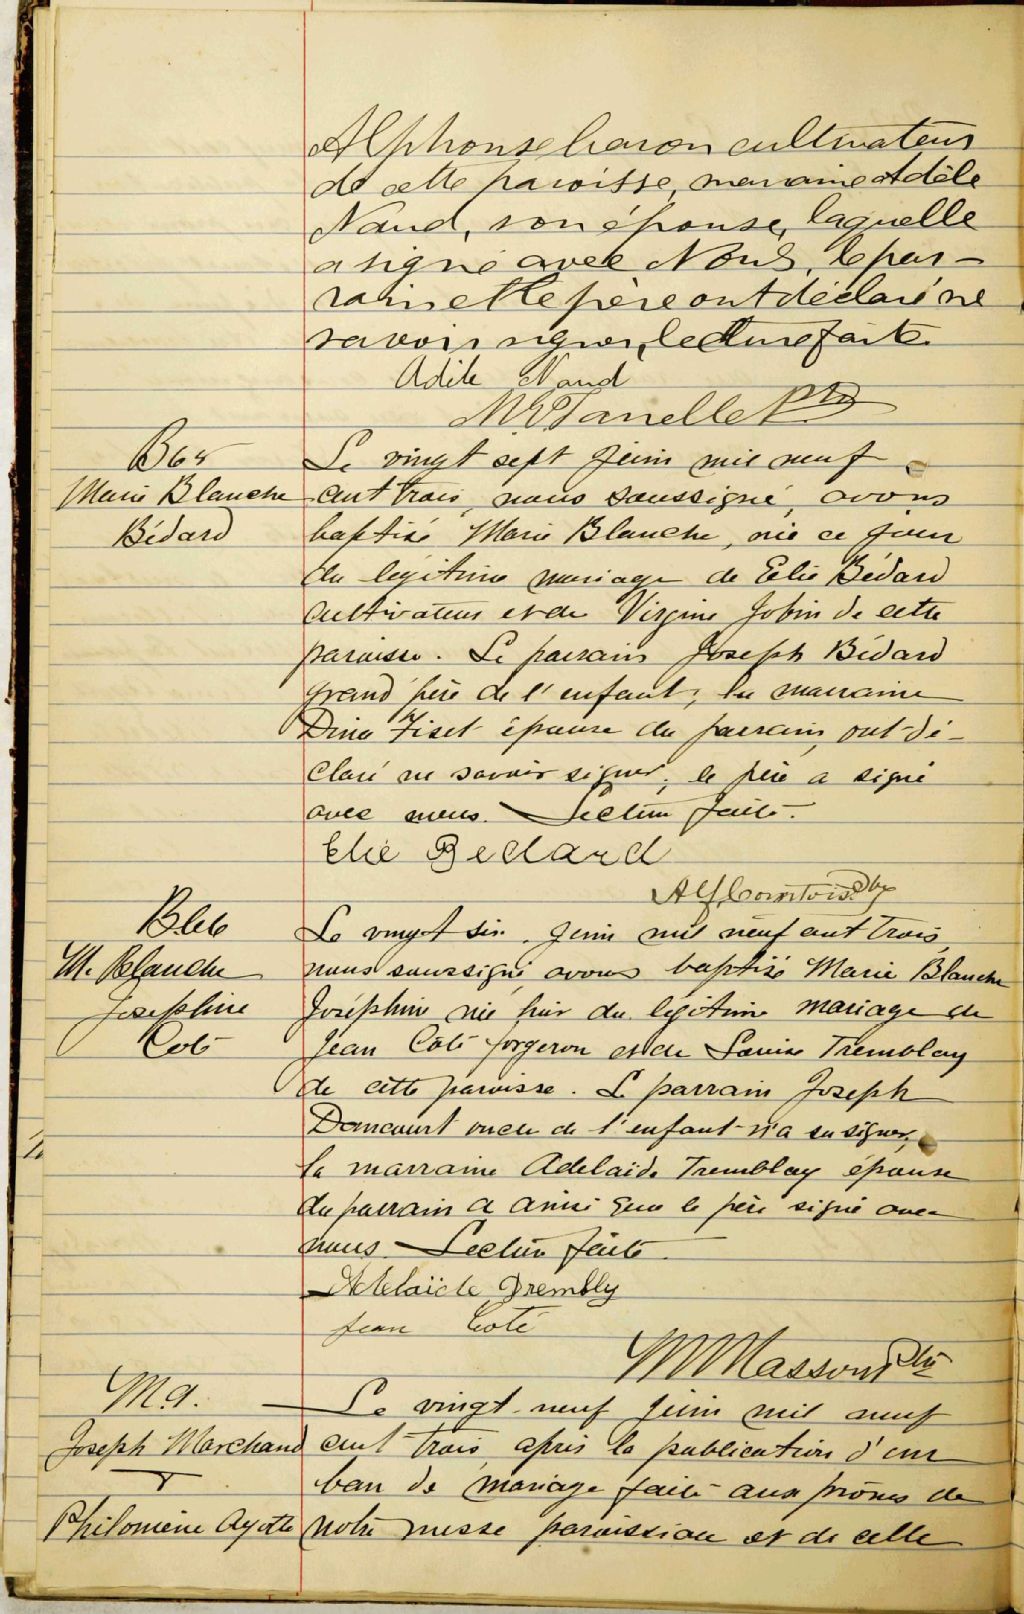 Alphonse Caron cultivateur
de cette paroisse, marraine Adèle
Naud, son épouse, laquelle
a signé avec Nous, le par-
rain et le père ont déclaré ne
savoir signer, lecture faite.
Adèle Naud
Ptre
B65
Marie Blanche
Bédard
Le vingt sept Juin mil neuf
cent trois, nous soussigné, avons
baptisé Marie Blanche, née ce jour
du légitime mariage de Elie Bédard
cultivateur et de Virginie Jobin de cette
paroisse. Le parrain Joseph Bédard
grand père de l'enfant, la marraine
Dina Fiset épouse du parrain, ont dé-
claré ne savoir signer, le père a signé
avec nous. Lecture faite.
Elie Bedard
Alf Comtois Ptre
B66
M. Blanche
Josephine
Coté
Le vingt six Juin mil neuf cent trois,
nous soussigné, avons baptisé Marie Blanche
Joséphine née hier du légitime mariage de
Jean Coté forgeron et de Louise Tremblay
de cette paroisse. Le parrain Joseph
Dancourt oncle de l'enfant n'a su signer,
la marraine Adelaïde Tremblay épouse
du parrain a ainsi que le père signé avec
nous. Lecture faite.
Adelaïde Trembly
Jean Coté
Masson Ptre
M9.
Joseph Marchand
Philomène Ayotte
Le vingt-neuf Juin mil neuf
cent trois, après la publication d'un
ban de mariage faite aux prônes de
notre messe paroissiale et de celle